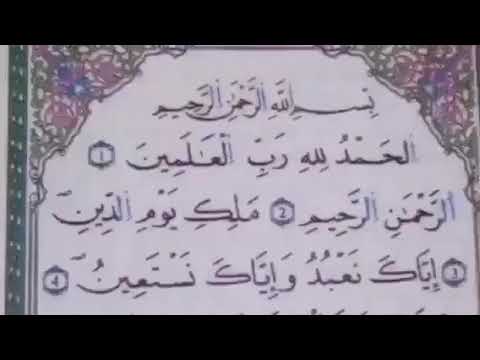 بِسْمِ اللّٰهِ الرَّحْمٰنِ الرَّحِيمِ
الْحَمْدُ لِلهِ رَبِّ الْعٰلَمِينَ ①
الرَّحْمٰنِ الرَّحِيمِ ② مَلِكِ يَوْمِ الدِّينِ
③ إِيَّاكَ نَعْبُدُ وَإِيَّاكَ نَسْتَعِينُ ④